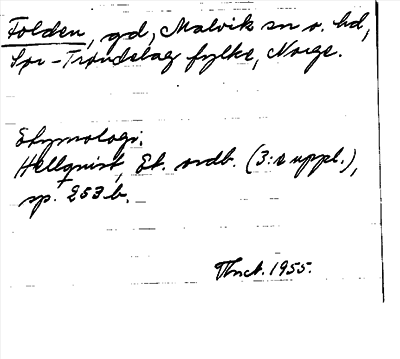 Folden, gd, Malvik sn o. hd,
Sør-Trøndelag fylke, Norge.
Etymologi.
Hellquist, Et. ordb. (3:e uppl.),
sp. 253 b.
1955.